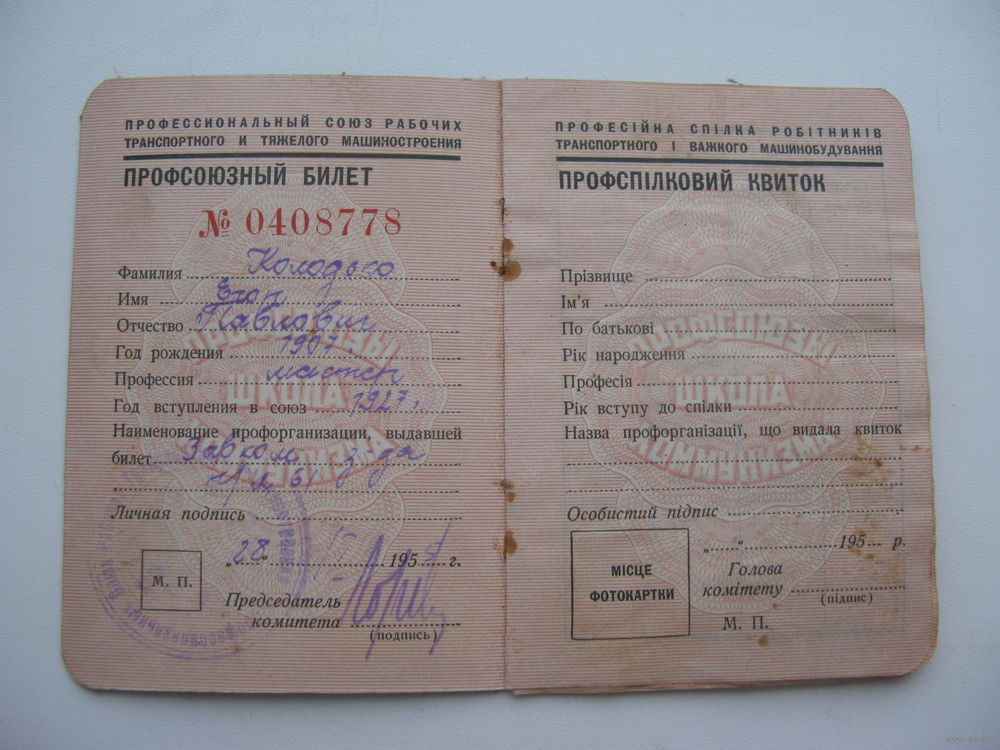 ПРОФЕССИОНАЛЬНЫЙ СОЮЗ РАБОЧИХ
ТРАНСПОРТНОГО И ТЯЖЕЛОГО МАШИНОСТРОЕНИЯ
ПРОФСОЮЗНЫЙ БИЛЕТ
№ 0408778
Фамилия Колодько
Имя Егор
Отчество Павлович
Год рождения 1907 г.
Профессия мастер
Год вступления в союз 1927 г.
Наименование профорганизации, выдавшей
билет Завком з-да
Личная подпись
„28“ 195 г.
М. П.
Председатель
комитета
(подпись)
ПРОФСОЮЗЫ
ШКОЛА
КОММУНИЗМА
ПРОФЕСІЙНА СПІЛКА РОБІТНИКІВ
ТРАНСПОРТНОГО І ВАЖКОГО МАШИНОБУДУВАННЯ
ПРОФСПІЛКОВИЙ КВИТОК
Прізвище
Ім'я
По батькові
Рік народження
Професія
Рік вступу до спілки
Назва профорганізації, що видала квиток
Особистий підпис
„ “ 195 р.
МІСЦЕ
ФОТОКАРТКИ
Голова
комітету
(підпис)
М. П.
ПРОФСОЮЗЫ
ШКОЛА
КОММУНИЗМА